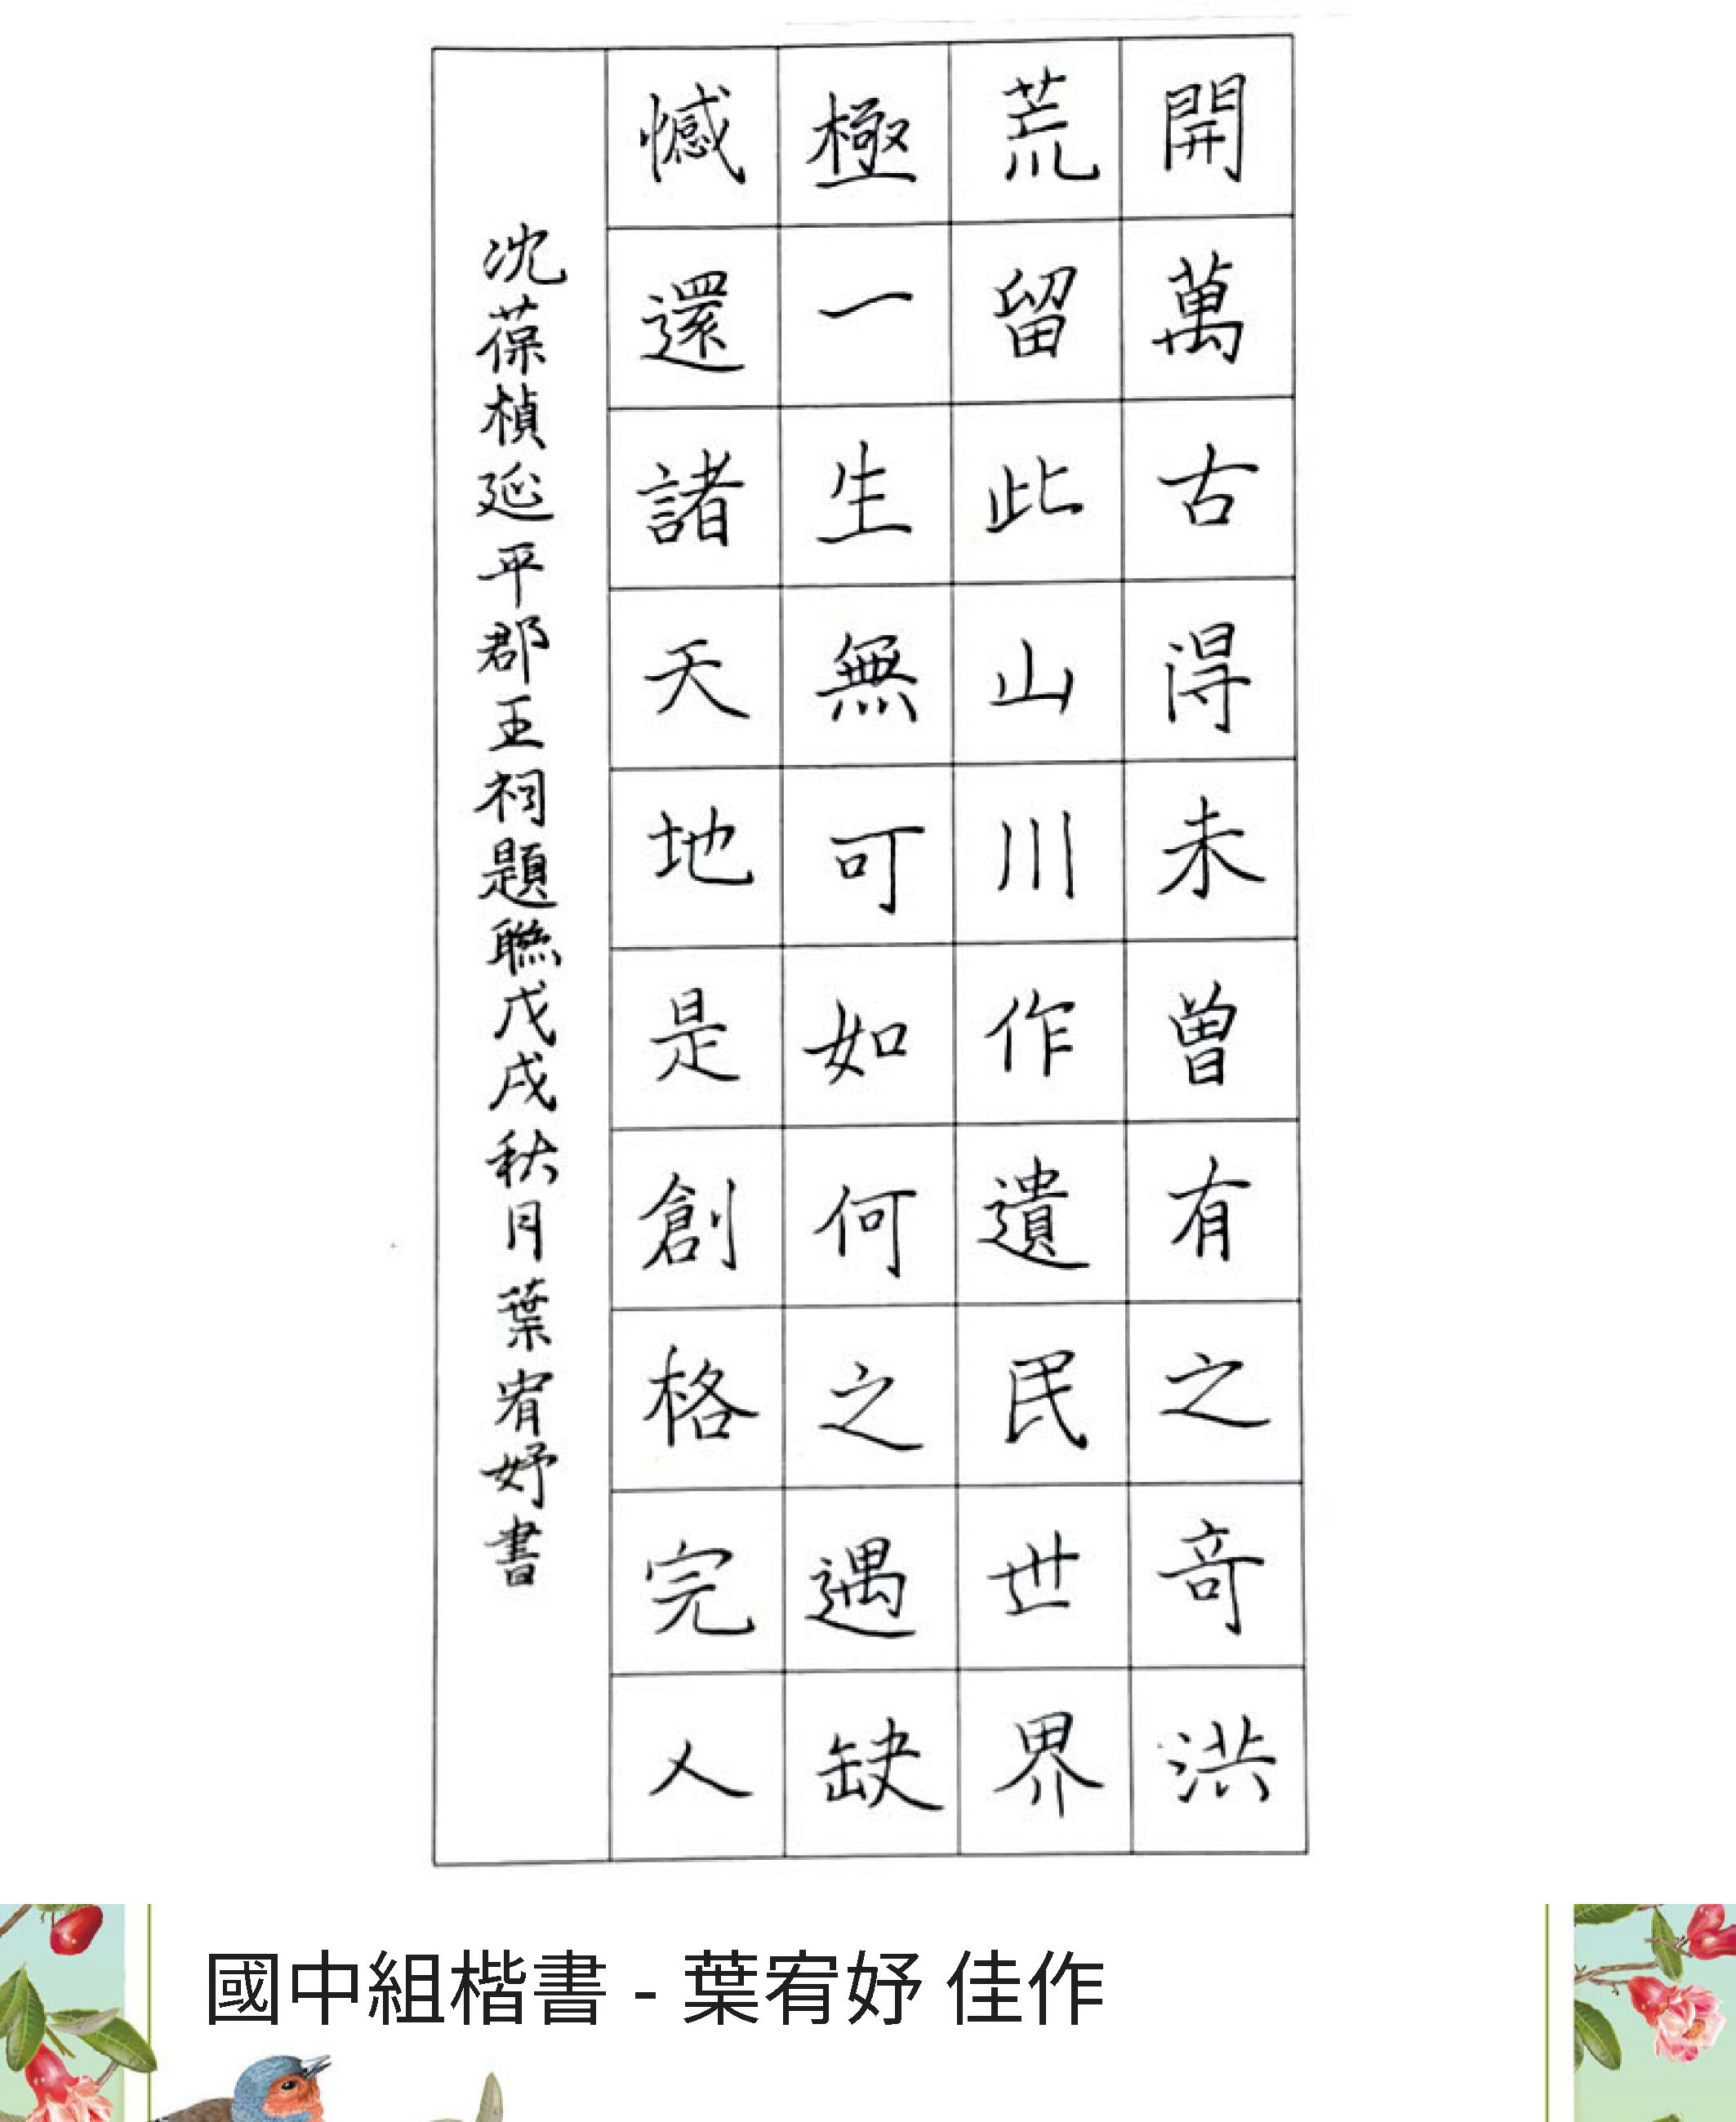 開萬古得未曾有之奇洪
荒留此山川作遺民世界
極一生無可如何之遇缺
憾還諸天地是創格完人
沈葆楨延平郡王祠題聯戊戌秋月葉宥妤書
國中組楷書 - 葉宥妤 佳作